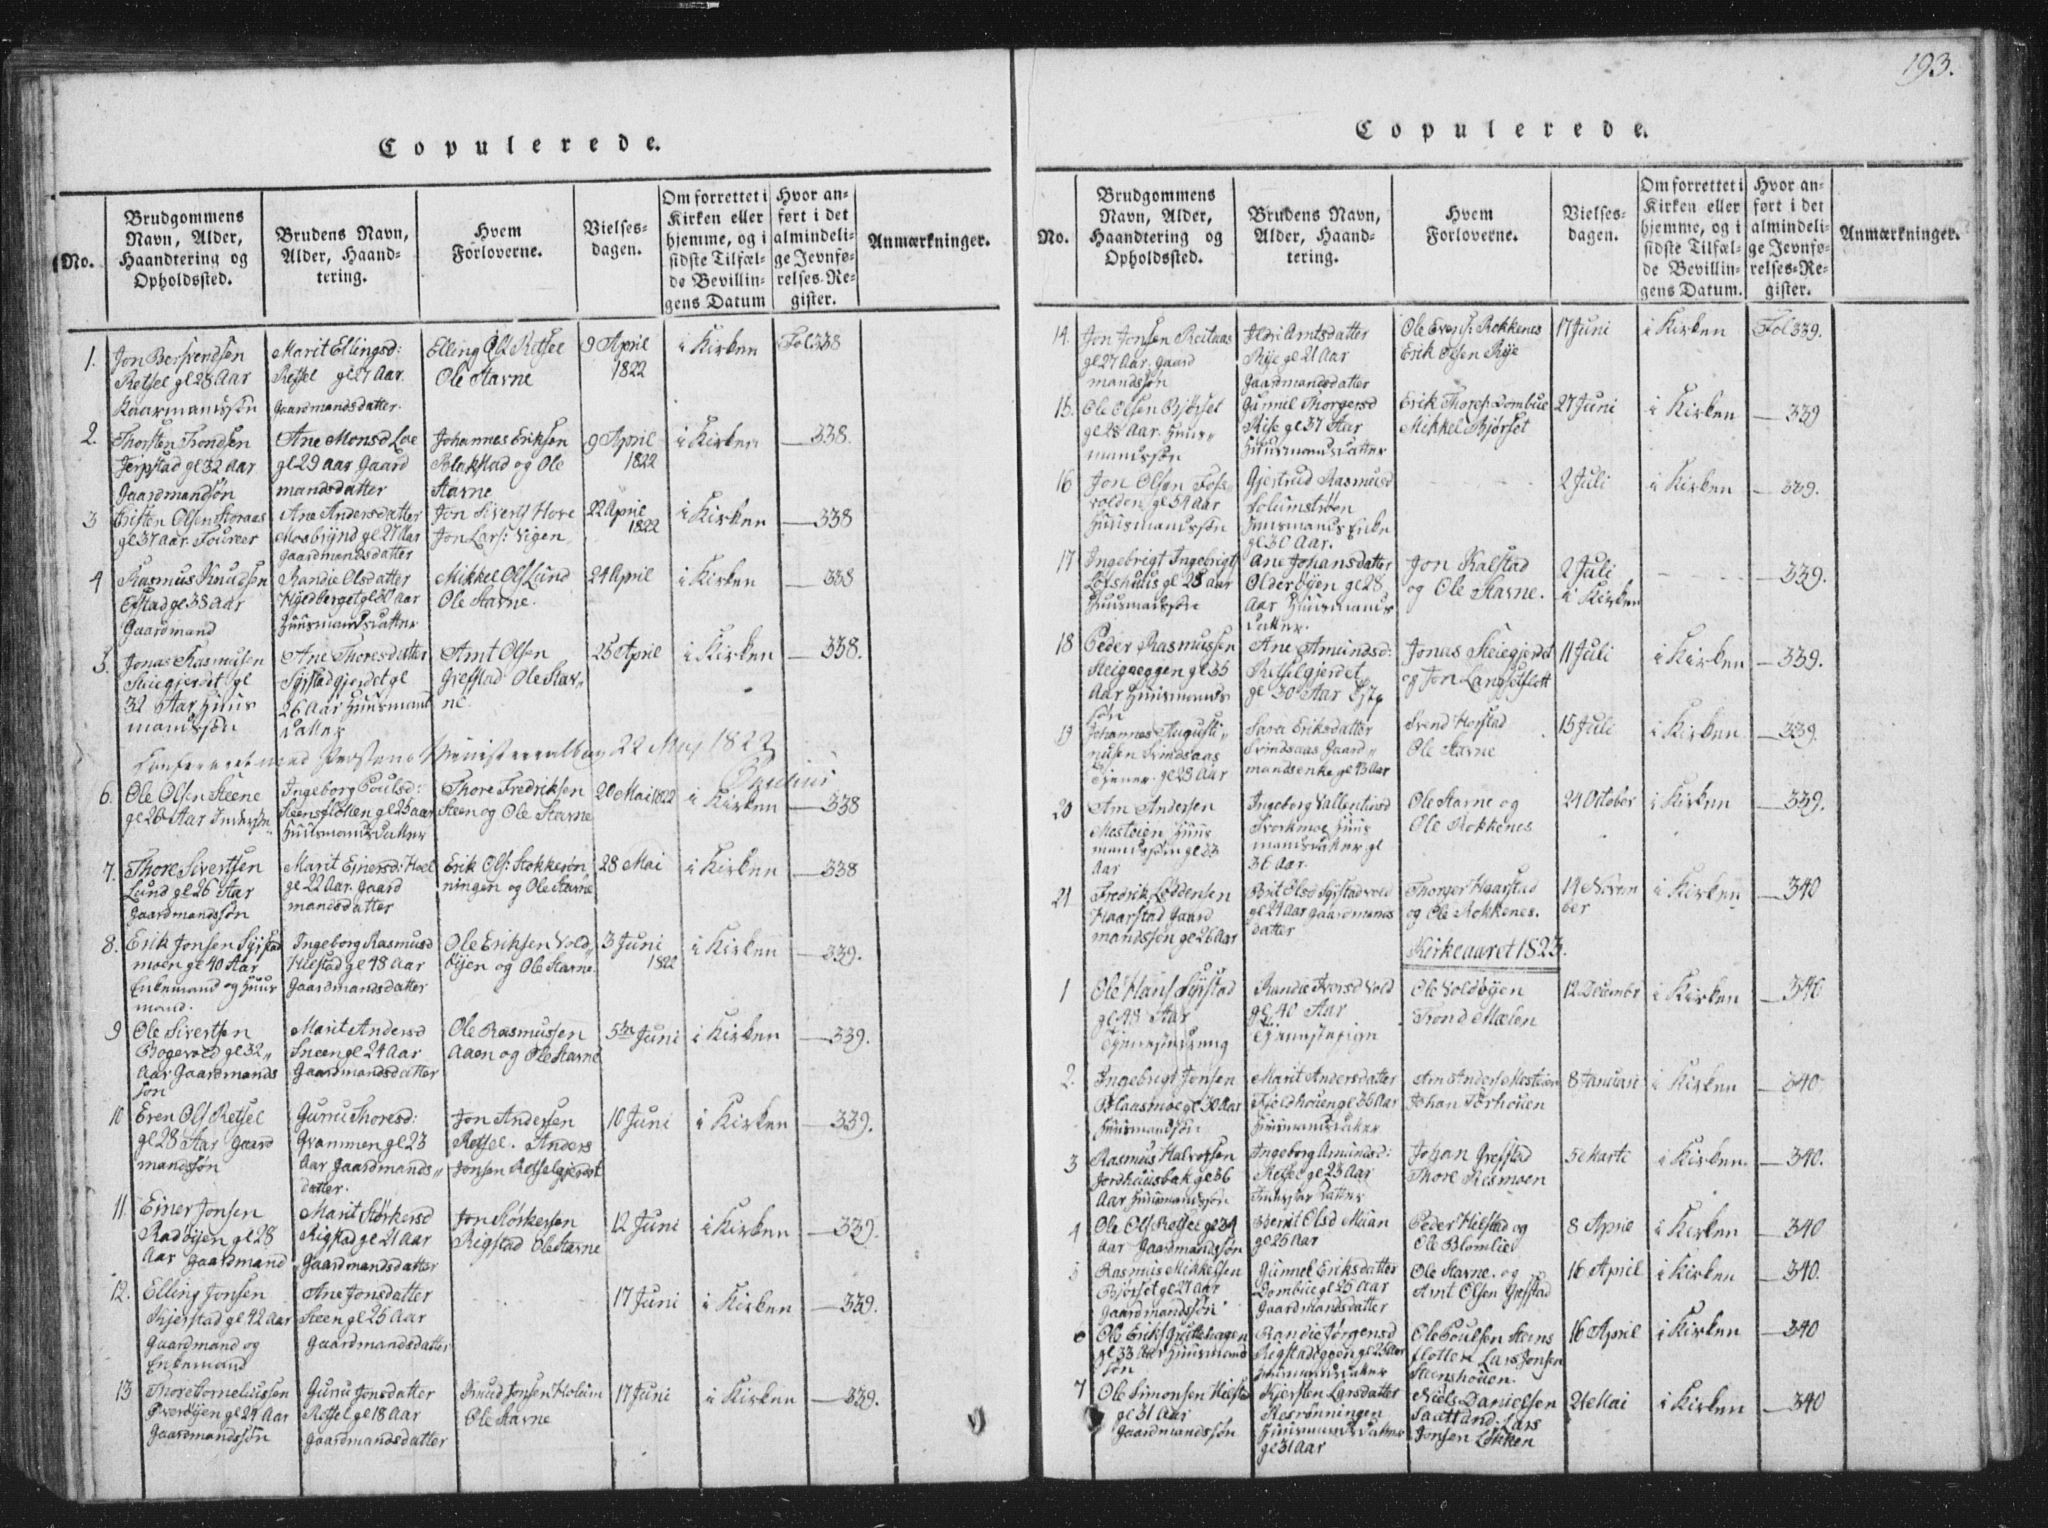 193.
Copulerede.
No.
Brudgommens Navn, Alder, Haandtering og Opholdssted.
Brudens Navn, Alder, Haandtering.
Hvem Forloverne.
Vielsesdagen.
Om forrettet i Kirken eller hjemme, og i sidste Tilfælde Bevillingens Datum
Hvor anført i det almindelige Jevnførelses-Register.
Anmærkninger.
1.
Jon
Retsel gl 28 Aar
Gaarmandssøn
Marit Ellingsd:
Retsel gl 27 Aar
Gaardmandsdatter.
Elling Ols Retsel
Ole Stavne
9 April
1822
i Kirken
Fol 338
2.
Thorsten Trondsen
Jerpstad gl 32 Aar
Gaardmandsøn
Ane Monsd Loe
gl 29 Aar Gaard
mandsdatter
Johannes Eriksen
Blakstad og Ole
Stavne
9 April
1822
i Kirken
338.
3
Cristen Olsen Storaas
gl 37 Aar
Ane Andersdatter
Mosbrynd gl 27 Aar
Gaardmandsdatter
Jon Sivers Hove
Jon Lars: Vigen
22 April
1822
i Kirken
338
4
Rasmus Knudsen
gl 38 Aar
Gaardmand
Randie Olsdatter
gl 30 Aar
Huusmandsdatter
Mikkel Ols Lund
Ole Stavne.
24 April
i Kirken
338
5.
Jonas Rasmusen
Steiegjerdet gl
32 Aar Huus
mandssøn
Ane Thoresdatter
Syrstadgjerdet gl
26 Aar Huusmand
datter
Amt Olsen
Grefstad Ole Stav
ne.
25 April
i Kirken
338.
22 May 1822
6.
Ole Olsen Steene
gl 26 Aar
Ingeborg Poulsd:
Steensflotten gl 25 aar
Huusmandsdatter
Thore Fredriksen
Steen og Ole Stavne
20 Mai 1822
i Kirken
338
7.
Thore Sivertsen
Lund gl 26 Aar
Gaardmandssøn
Marit Ejnersd: Hoel
gl 22 Aar. Gaard
mandsdatter
Erik Ols: Stokkerøn
ningen og Ole Stavne
28 Mai
i Kirken
338
8.
Erik Jonsen Syrstad
moen gl 40 Aar
Enkemand og Huus
mand.
Ingeborg Rasmusd
Hilstad gl 48 Aar
Gaardmandsdatter
Ole Eriksen Vold
bøjen og Ole Stavne.
3 Juni
1822
i Kirken
339.
9
Ole Sivertsen
Bogevold gl 32
Aar Gaardmands
søn
Marit Andersd
Sneen gl 24 Aar
Gaardmandsdatter
Ole Rasmussen
Aaen og Ole Stavne
5te Juni
i Kirken
339.
10
Even Ols Retsel
gl 28 Aar Gaard
mandsøn
Guru Thoresd:
Grammen gl 23
Aar Gaardmands
datter.
Jon Andersen
Retsel. Anders
Jonsen Retselgjerdet
10 Juni
i Kirken
339.
11
Einer Jonsen
Radbøjen gl 28
Aar Gaardmand
Marit Størkersd
Rigstad gl 21 Aar
Gaardmandsdatter
Jon Størkersen
Rigstad Ole Stavne
12 Juni
i Kirken
339.
12.
Elling Jonsen
Kjerstad gl 42 Aar
Gaardmand og
Enkemand
Ane Jonsdatter
Steen gl 25 Aar
Gaardmandsdatter
17 Juni
i Kirken
339.
13
Thore Corneliussen
Øverbøjen gl 24 Aar
Gaardmandssøn
Guru Jonsdatter
Retsel gl 18 Aar
Gaardmandsdatter
Knud Jonsen Holum
Ole Stavne
17 Juni
i Kirken
339.
Copulerede.
No.
Brudgommens Navn, Alder, Haandtering og Opholdssted.
Brudens Navn, Alder, Haandtering.
Hvem Forloverne.
Vielsesdagen.
Om forrettet i Kirken eller hjemme, og i sidste Tilfælde Bevillingens Datum.
Hvor anført i det almindelige Jevnførelses-Register.
Anmærkninger.
14.
Jon Jonsen Reitaas
gl 27 Aar. Gaard
mandssøn
Amtsdatter
Rije gl 21 Aar
Gaardmandsdatter
Ole Evens: Rokkenes
Erik Olsen Rije
17 Juni
i Kirken
Fol 339.
15.
Ole Olsen Bjørset
gl 28 Aar. Huus
mandssøn
Gunnil Thorgersd
Rise gl 37 Aar
Huusmandsdatter
Erik Thores: Dombue
Mikkel Bjørset
27 Juni
i Kirken
339
16
Jon Olsen Fos
volden gl 54 Aar
Huusmandssøn
Gjertrud Rasmusd
Solumstrøen
Huusmands Enke
gl 30 Aar.
2 Juli
i Kirken
339.
17
Ingebrigt Ingebrigts
gl 28 Aar
Huusmandssøn
Ane Johansdatter
Olderbøjen gl 28
Aar Huusmands
datter.
Jon Kalstad
og Ole Stavne.
2 Juli
i Kirken
339.
18
Peder Rasmussen
Steigaeggen gl 35
Aar Huusmands
søn
Ane Amundsd:
Retselgjerdet
gl 30 Aar
Jonas Steiegjerdet
og Jon Langsetslett
11 Juli
i Kirken
339.
19
Johannes Augusti
nusen Svindsaas
Tjener. gl 28 Aar
Sara Eriksdatter
Svindsaas Gaard
mandsenke gl 43 Aar
Svend Horstad
Ole Stavne
15 Juli
i Kirken
339.
20
Arn Andersen
Mestøien Huus
mandssøn gl 33
Aar
Ingeborg Vallentinsd
Svorkmoe Huus
mandsdatter gl
36 Aar.
Ole Stavne og
Ole Rokkenes
24 October
i Kirken
339.
21
Fredrik Loddensen
Haarstad Gaard
mandssøn gl 26 Aar
Brit Olsd Syrstadvold
gl 24 Aar Gaardmands
datter
Thorger Haarstad
og Ole Rokkenes.
14 Novem
ber
i Kirken
340
Kirkeaaret 1823.
1
Ole Hans Syrstad
gl 43 Aar
Tjenestedreng
Randie Iversd Vold
gl 40 Aar
Tjenestepige
Ole Voldbøjen
Trond Mælen
12 Decembr
i Kirken
340
2.
Ingebrigt Jonsen
Blaasmoe gl 30 Aar
Huusmandsøn
Marit Andersdatter
Fjeldhouen gl 36 Aar
Huusmandsdatter
Arn Anders Mestøien
Johan Torhouen
8 Januari
i Kirken
340
3
Rasmus Halvorsen
Jordhuusbak gl 36
Aar Huusmandssøn
Ingeborg Amundsd:
Retsel gl 23 Aar
Johan Grefstad
Thore Rismoen
5te Marti
i Kirken.
340.
4
Ole Ols Retsel gl 34
Aar Gaardmandssøn
Berit Olsd Muan
gl 25 Aar
Peder Hilstad og
Ole Blomlie
8 April
i Kirken
340
5
Rasmus Mikkelsen
Bjørset gl 27 Aar
Gaardmandssøn
Gunnel Eriksdatter
Dombue gl 25 Aar
Gaardmandsdatter
Ole Stavne og
Amt Olsen Grefstad
16 April
i Kirken
340.
6
Ole Eriks
gl 33 Aar Huusmand
søn
Randie Jørgensd
gl 25 Aar
Huusmandsdatter
Ole Poulsen Steens
flotten Lars Jonsen
Steenshouen.
16 April
i Kirken
340
7
Ole Simonsen Hilstad
gl 31 Aar
Gaardmandssøn
Kjersten Larsdatter
Resrønningen
Huusmandsdatter
gl 31 Aar
Niels Danielsen
Lars
Jonsen Løkken
21 Mai
i Kirken
340